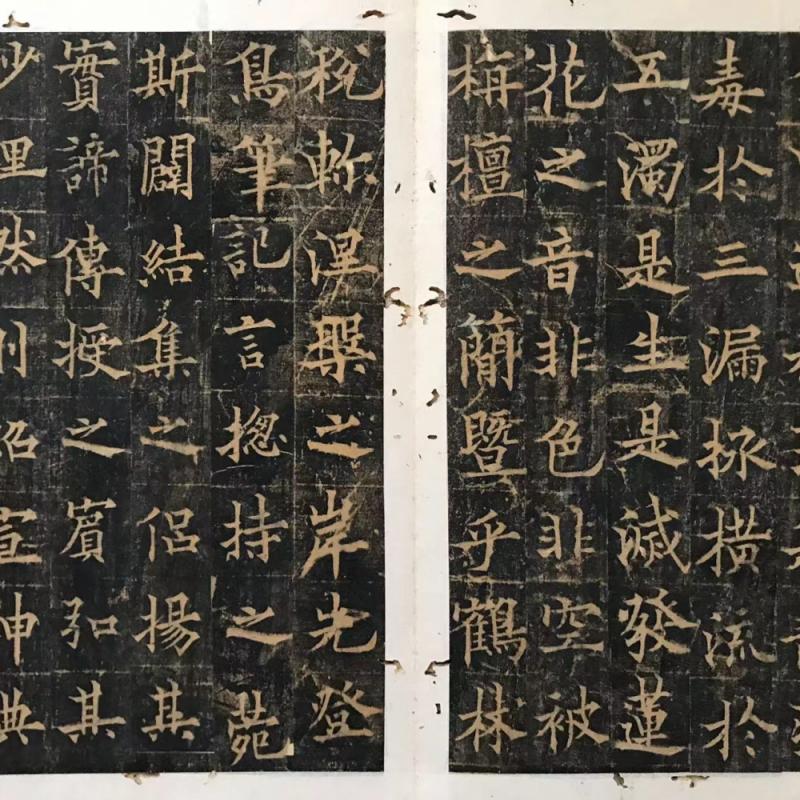 毒於三漏拯橫流於
五濁是生是滅發蓮
花之音非色非空被
栴檀之簡暨乎鶴林
稅軫湼槃之岸先登
鳥筆記言揔持之菀
斯闢結集之侶揚其
實諦傳授之賓弘其
妙理然則紹宣神典